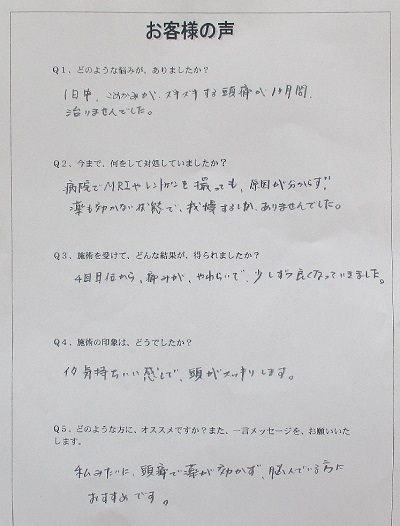 お客様の声
Q1、どのような悩みが、ありましたか？
1日中、こめかみが、ズキズキする頭痛が1ヶ月間、
治りませんでした。
Q2、今まで、何をして対処していましたか？
病院でMRIやレントゲンを撮っても、原因が分からず、
薬も効かない状態で、我慢するしか、ありませんでした。
Q3、施術を受けて、どんな結果が、得られましたか？
4回目位から、痛みが、やわらいで、少しずつ良くなっていきました。
Q4、施術の印象は、どうでしたか？
イタ気持ちいい感じで、頭がスッキリします。
Q5、どのような方に、オススメですか？また、一言メッセージを、お願いいた
します。
私みたいに、頭痛で薬が効かず、悩んでいる方に
おすすめです。